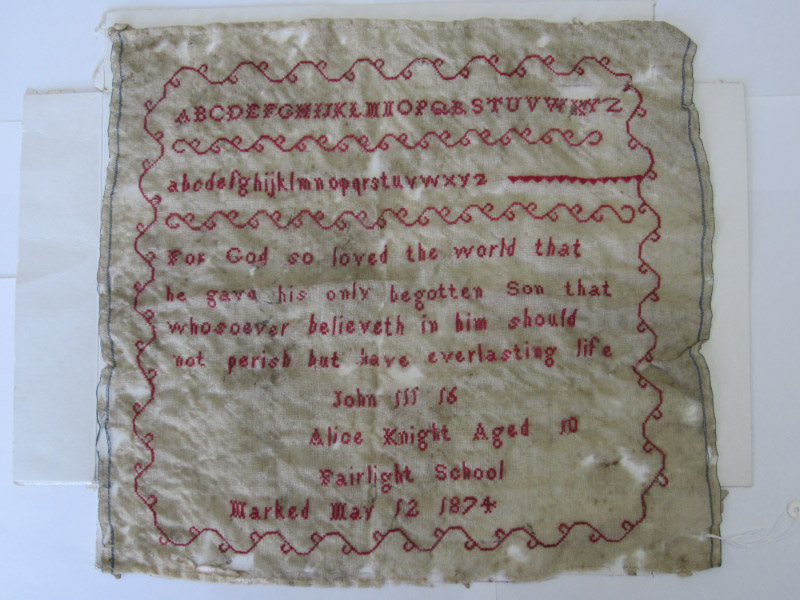 ABCDEFGHIJKLMNOPQRSTUVWXYZ
abcdefghijklmnopqrstuvwxyz
For God so loved the world that
he gave his only begotten Son that
whosoever believeth in him should
not perish but have everlasting life
John III 16
Alice Knight Aged 10
Fairlight School
Marked May 12 1874